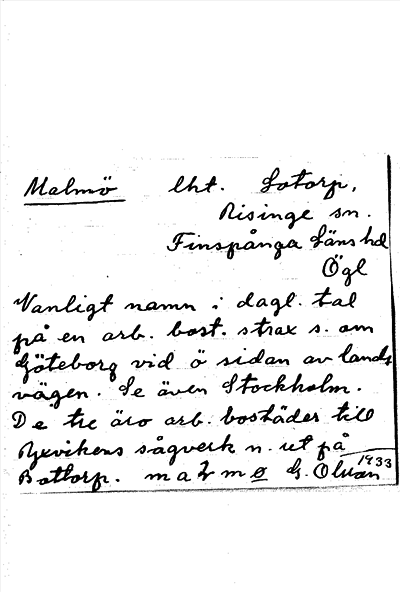 Malmö lht. Sotorp,
Risinge sn.
Finspånga Läns hd
Ögl
Vanligt namn i dagl. tal
på en arb. bost. strax s. om
Göteborg vid ö sidan av lands
vägen. Se även Stockholm.
De tre äro arb. bostäder till
sågverk n. ut på
Battorp. G. Olsson
1933